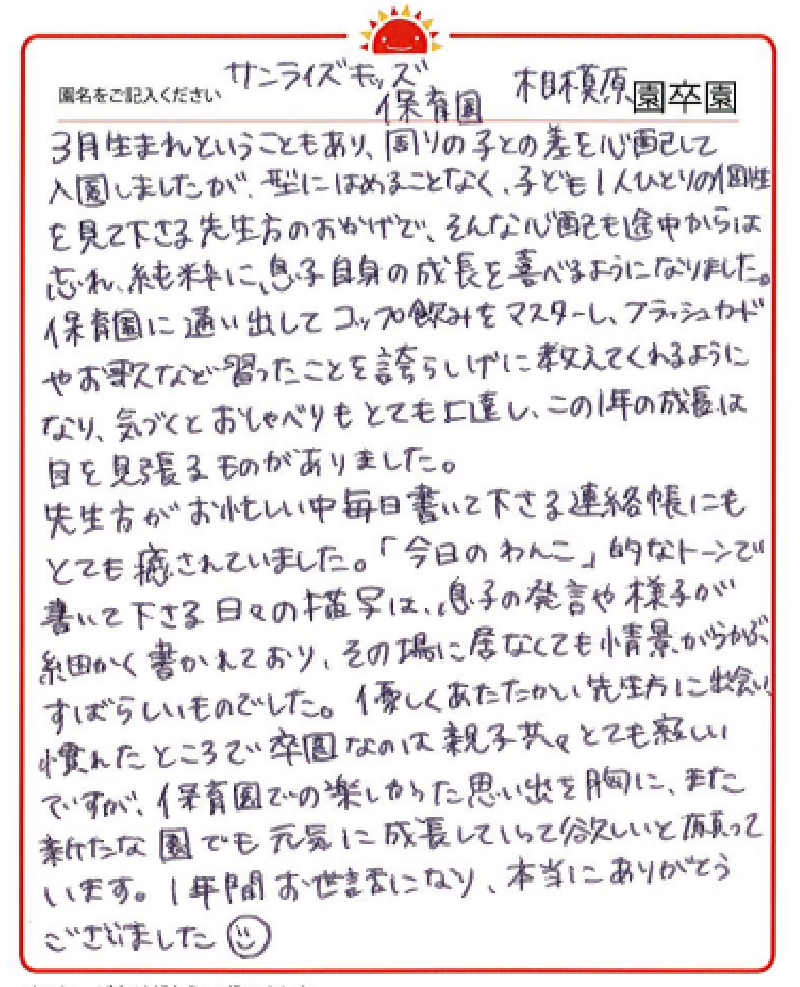 サンライズキッズ
園名をご記入ください 保育園 相模原園卒園
3月生まれということもあり、周りの子との差を心配して
入園しましたが、型にはめることなく、子ども1人ひとりの個性
を見て下さる先生方のおかげで、そんな心配も途中からは
忘れ、純粋に、息子自身の成長を喜べるようになりました。
保育園に通い出してコップ飲みをマスターし、フラッシュカード
やお歌など習ったことを誇らしげに教えてくれるように
なり、気づくとおしゃべりもとても上達し、この1年の成長は
目を見張るものがありました。
先生方がお忙しい中毎日書いて下さる連絡帳にも
とても癒されていました。「今日のわんこ」的なトーンで
書いて下さる日々の描写は、息子の発言や様子が
細かく書かれており、その場に居なくても情景がうかぶ、
すばらしいものでした。優しくあたたかい先生方に出会い、
慣れたところで卒園なのは親子共々とても寂しい
ですが、保育園での楽しかった思い出を胸に、また
新たな園でも元気に成長していって欲しいと願って
います。1年間お世話になり、本当にありがとう
ございました